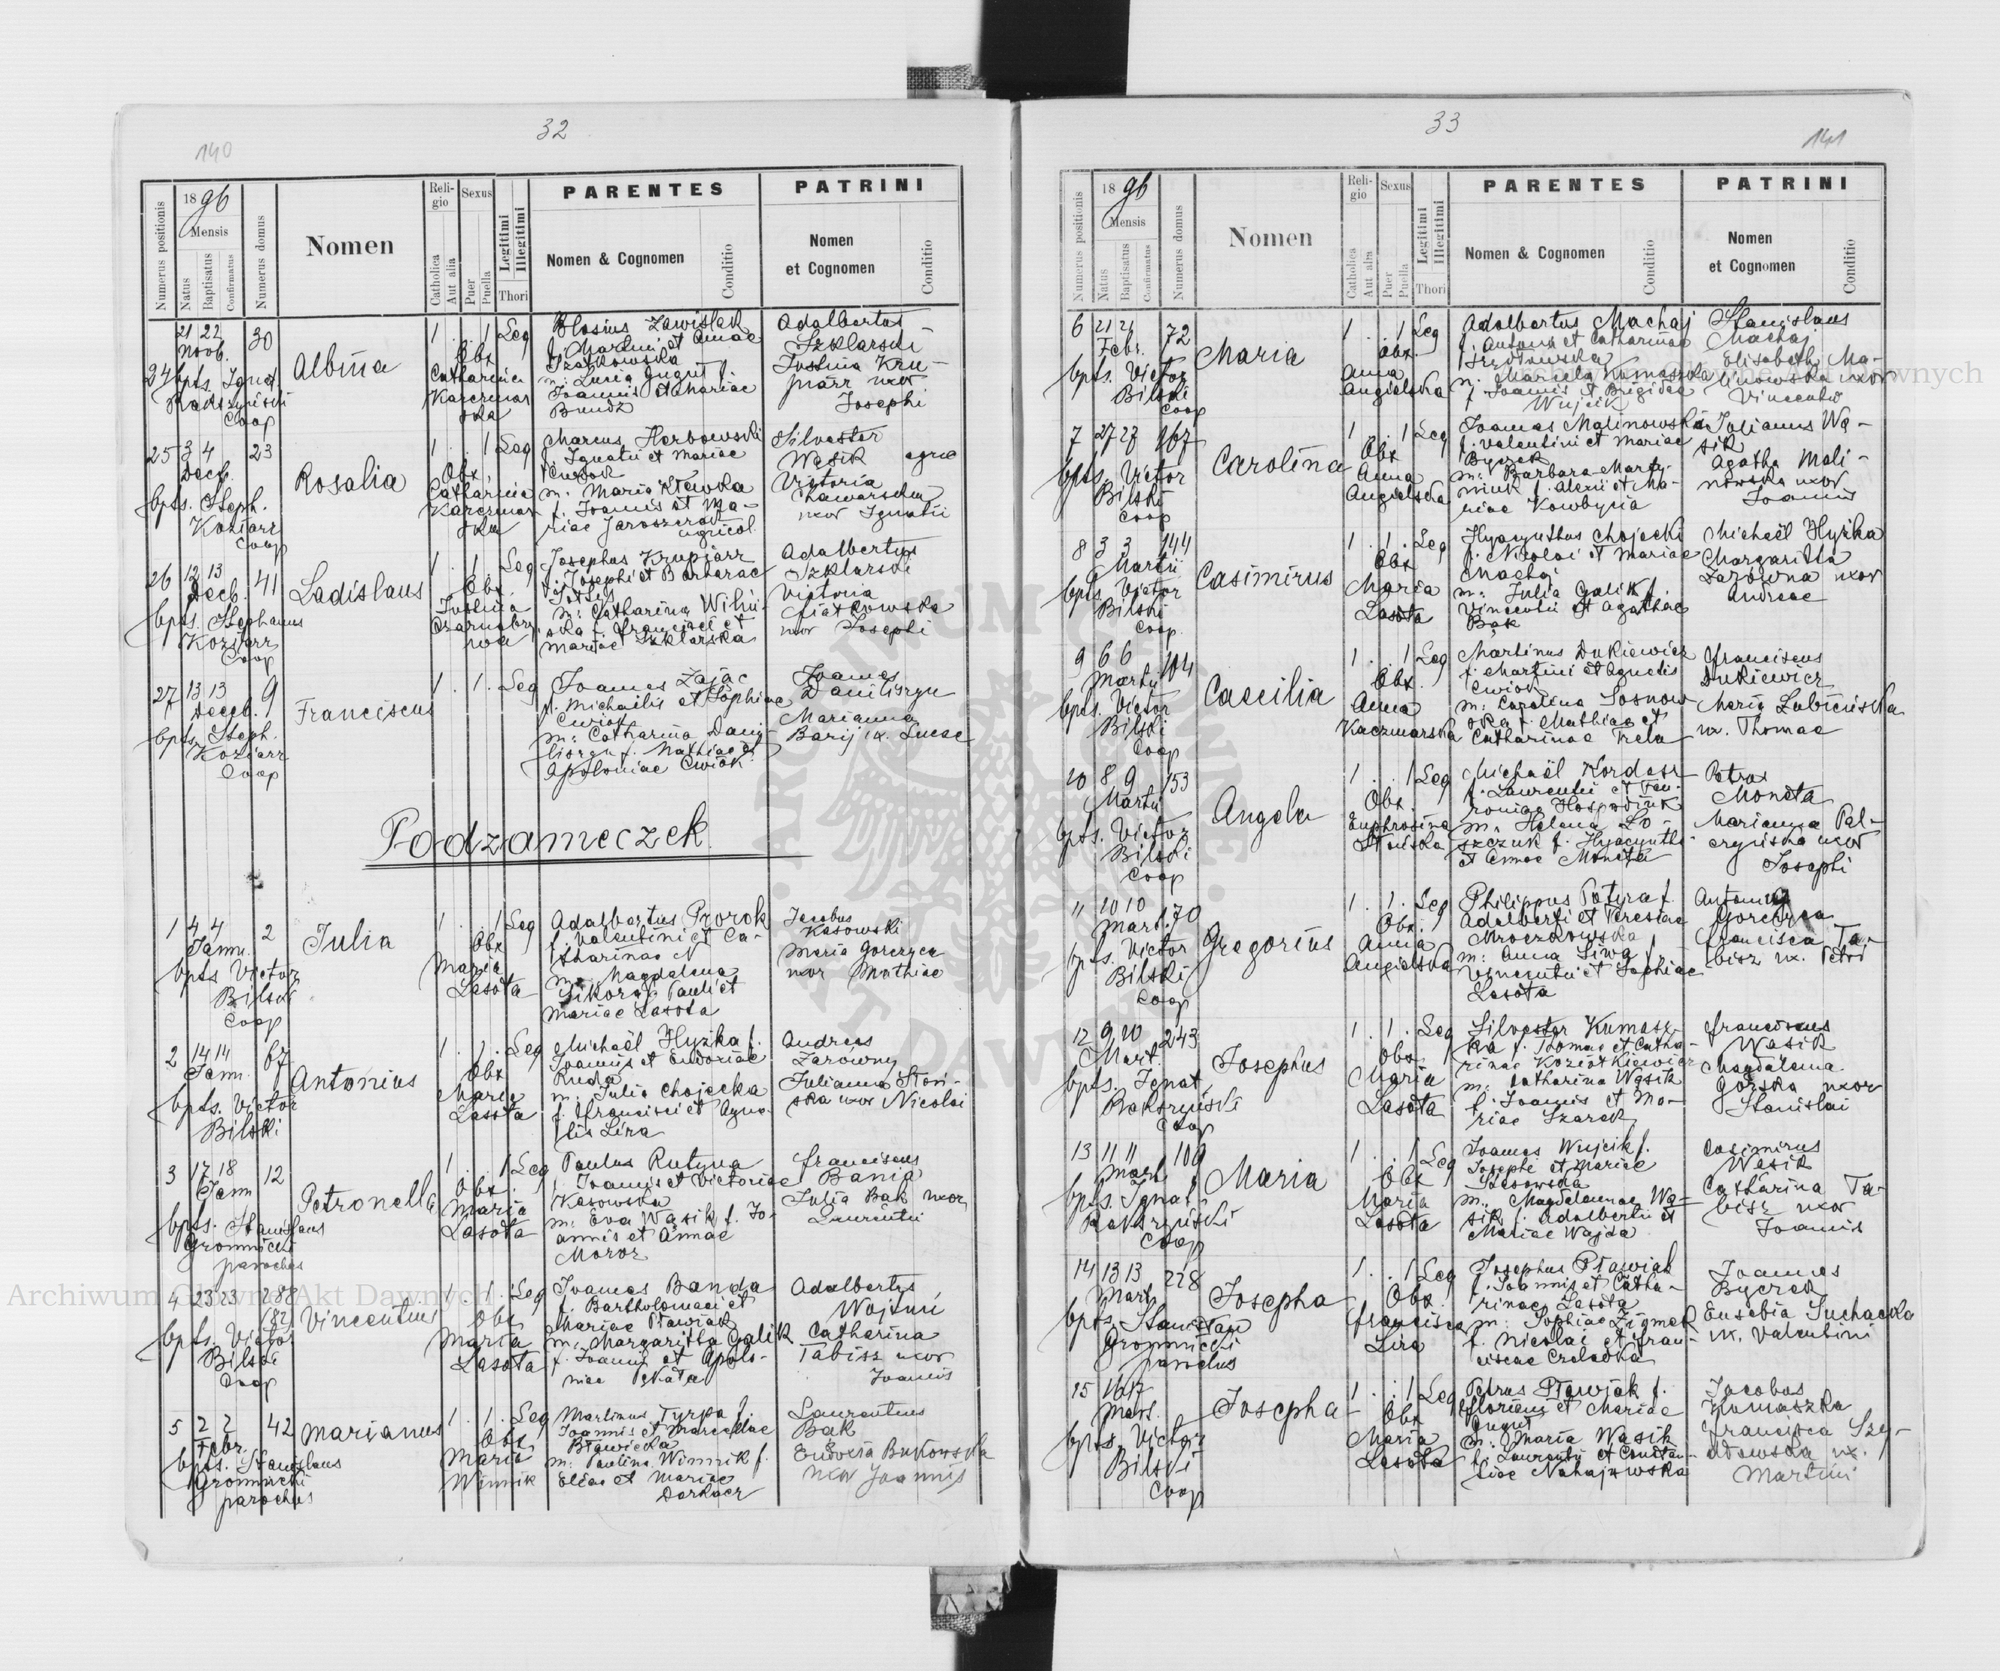 32
140
Numerus positionis
1896
Mensis
Natus
Baptisatus
Confirmatus
Numerus domus
Nomen
Religio
Catholica
Aut alia
Sexus
Puer
Puella
Legitimi
Illegitimi
Thori
PARENTES
Nomen & Cognomen
Conditio
PATRINI
Nomen
et Cognomen
Conditio
24
21 22
Novb.
30
bpts. Ignat.
Coop
Albina
1 . . 1 Leg
Obx
Catharina
Karczmar
ska
Blasius Zawiślak
f. Martini et Annae
Joannis et Mariae
Bundz
Adalbertus
Szklarski
Justina Kru-
piarz uxor
Josephi
25
3 4
Decb.
23
bpts. Steph.
Koziarz
Coop
Rosalia
1 . . 1 Leg
Obx
Catharina
Karczmar
ska
Marcus Herbowski
f. Ignatii et Mariae
m. Maria
f. Joannis et Ma-
riae
agricol
Silvester
Wąsik agric
Victoria
uxor Ignatii
26
12 13
Decb.
41
bpts. Stephanus
Koziarz
Coop
Ladislaus
1 . 1 . Leg
Obx.
Justina
Josephus Krupiarz
f. Josephi et Barbarae
m: Catharina
f. Francisci et
Mariae Szklarska
Adalbertus
Szklarski
Victoria
uxor Josephi
27
13 13
Decb.
9
bpts. Steph.
Koziarz
Coop
Franciscus
1 . 1 . Leg
Joannes Zając
f. Michaelis et Sophiae
Ćwiok
m: Catharina Dani-
f. Mathiae et
Apoloniae Ćwiok
Joannes
Marianna
ux. Lucae
Podzameczek
1
4 4
Jann.
2
bpts Victor
Bilski
Coop
Julia
1 . . 1 Leg
Obx
Maria
Lasota
Adalbertus Prorok
f. Valentini et Ca-
tharinae N
m. Magdalena
Sikora f. Pauli et
Mariae Lasota
Jacobus
Kasowski
Maria Gorczyca
uxor Mathiae
2
14 14
Jann.
67
bpts. Victor
Bilski
Antonius
1 . 1 . Leg
Obx
Maria
Lasota
Michaël Hyzka f.
Joannis et Eudoxiae
Ruda
m. Julia Chojecka
f. Francisci et Agne-
tis Lira
Andreas
Zarowny
Julianna Stoń-
ska uxor Nicolai
3
17 18
Jann
12
bpts. Stanislaus
Gromnicki
parochus
Petronella
1 . . 1 Leg
Obx.
Maria
Lasota
Paulus Rutyna
f. Joannis et Victoriae
Kasowska
m: Eva Wąsik f. Jo-
annis et Annae
Moroz
Franciscus
Bania
Julia Bąk uxor
Laurentii
4
23 23
288
(82)
bpts. Victor
Bilski
Coop
Vincentius
1 . 1 . Leg
Obx
Maria
Lasota
Joannes Banda
f. Bartholomaei et
Mariae Pławiak
m. Margaritha Galik
f. Joannis et Apolo-
niae
Adalbertus
Catharina
Tabisz uxor
Joannis
5
2 2
Febr.
42
bpts. Stanislaus
Gromnicki
parochus
Marianus
1 . 1 . Leg
Obx
Maria
Winnik
Martinus Tyrpa f.
Joannis et Marcellae
m: Paulina Winnik f.
Eliae et Mariae
Laurentius
Bąk
Eudoxia Bukowska
uxor Joannis
33
141
Numerus positionis
1896
Mensis
Natus
Baptisatus
Confirmatus
Numerus domus
Nomen
Religio
Catholica
Aut alia
Sexus
Puer
Puella
Legitimi
Illegitimi
Thori
PARENTES
Nomen & Cognomen
Conditio
PATRINI
Nomen
et Cognomen
Conditio
6
21 21
Febr.
72
bpts. Victor
Bilski
Coop
Maria
1 . . 1 Leg
Obx.
Anna
Angielska
Adalbertus Machaj
f. Antonii et Catharinae
m. Marcela Kumaszka
f. Joannis et Brigidae
Wujcik
Stanislaus
Machaj
Elisabeth Ma-
linowska uxor
Vincentii
7
27 27
167
bpts. Victor
Bilski
Coop
Carolina
1 . . 1 Leg
Obx
Anna
Angielska
Joannes Malinowski
f. Valentini et Mariae
Byczek
m: Barbara Marty-
niuk f. Alexii et Ma-
riae
Julianus Wą-
sik
Agatha Mali-
nowska uxor
Joannis
8
3 3
Martii
144
bpts. Victor
Bilski
Coop.
Casimirus
1 . 1 . Leg
Obx
Maria
Lasota
Hyacynthus Chojecki
f. Nicolai et Mariae
Machaj
m. Julia Galik f.
Vincentii et Agathae
Bąk
Michaël Hyzka
Margaritha
Zarowna uxor
Andreae
9
6 6
Martii
104
bpts. Victor
Bilski
Coop
Caecilia
1 . . 1 Leg
Obx.
Anna
Kaczmarska
Martinus Dukiewicz
f. Martini et Agnetis
Ćwiok
m: Carolina Sosnow
ska f. Mathiae et
Catharinae Trela
Franciscus
Dukiewicz
Maria Lubieńska
ux. Thomae
10
8 9
Martii
153
bpts. Victor
Bilski
Coop
Angela
1 . . 1 Leg
Obx.
Euphrosina
Michaël Kordasz
f. Laurentii et Feu-
roniae Hospodiuk
m. Helena Lo-
szczuk f. Hyacynthi
et Annae Moneta
Petrus
Moneta
Marianna Pal-
czyńska uxor
Josephi
11
10 10
Mart.
170
bpts. Victor
Bilski
Coop
Gregorius
1 . 1 . Leg
Obx.
Anna
Angielska
Philippus Potyra f.
Adalberti et Theresiae
Mroczkowska
m: Anna Siwa f.
Vincentii et Sophiae
Lasota
Antonius
Gorczyca
Francisca Ta-
bisz ux. Petri
12
9 10
Mart.
243
bpts. Ignat.
Coop
Josephus
1 . 1 . Leg
Obx
Maria
Lasota
Silvester Kumasz-
ka f. Thomae et Catha-
rinae
m: Catharina Wąsik
f. Joannis et Ma-
riae Szarek
Franciscus
Wąsik
Magdalena
Górska uxor
Stanislai
13
11 11
Mart.
109
bpts. Ignat.
Coop
Maria
1 . . 1 Leg
Obx
Maria
Lasota
Joannes Wujcik f.
Josephi et Mariae
m. Magdalenae Wą-
sik f. Adalberti et
Mariae Wajda
Casimirus
Wąsik
Catharina Ta-
bisz uxor
Joannis
14
13 13
Mart.
228
bpts. Stanislaus
Gromnicki
parochus
Josepha
1 . . 1 Leg
Obx.
Francisca
Lira
Josephus Pławiak
f. Joannis et Catha-
rinae Lasota
m: Sophiae Zigmek
f. Nicolai et Fran-
ciscae Czeladka
Joannes
Byczek
Eusebia Suchacka
ux. Valentini
15
16 17
Mart.
bpts. Victor
Bilski
Coop
Josepha
1 . . 1 Leg
Obx
Maria
Lasota
Petrus Pławiak f.
Floriani et Mariae
m. Maria Wąsik
f. Laurentii et Constan-
tiae Nahajowska
Jacobus
Kumaszka
Francisca Szy-
dłowska ux.
Martini
Archiwum Główne Akt Dawnych